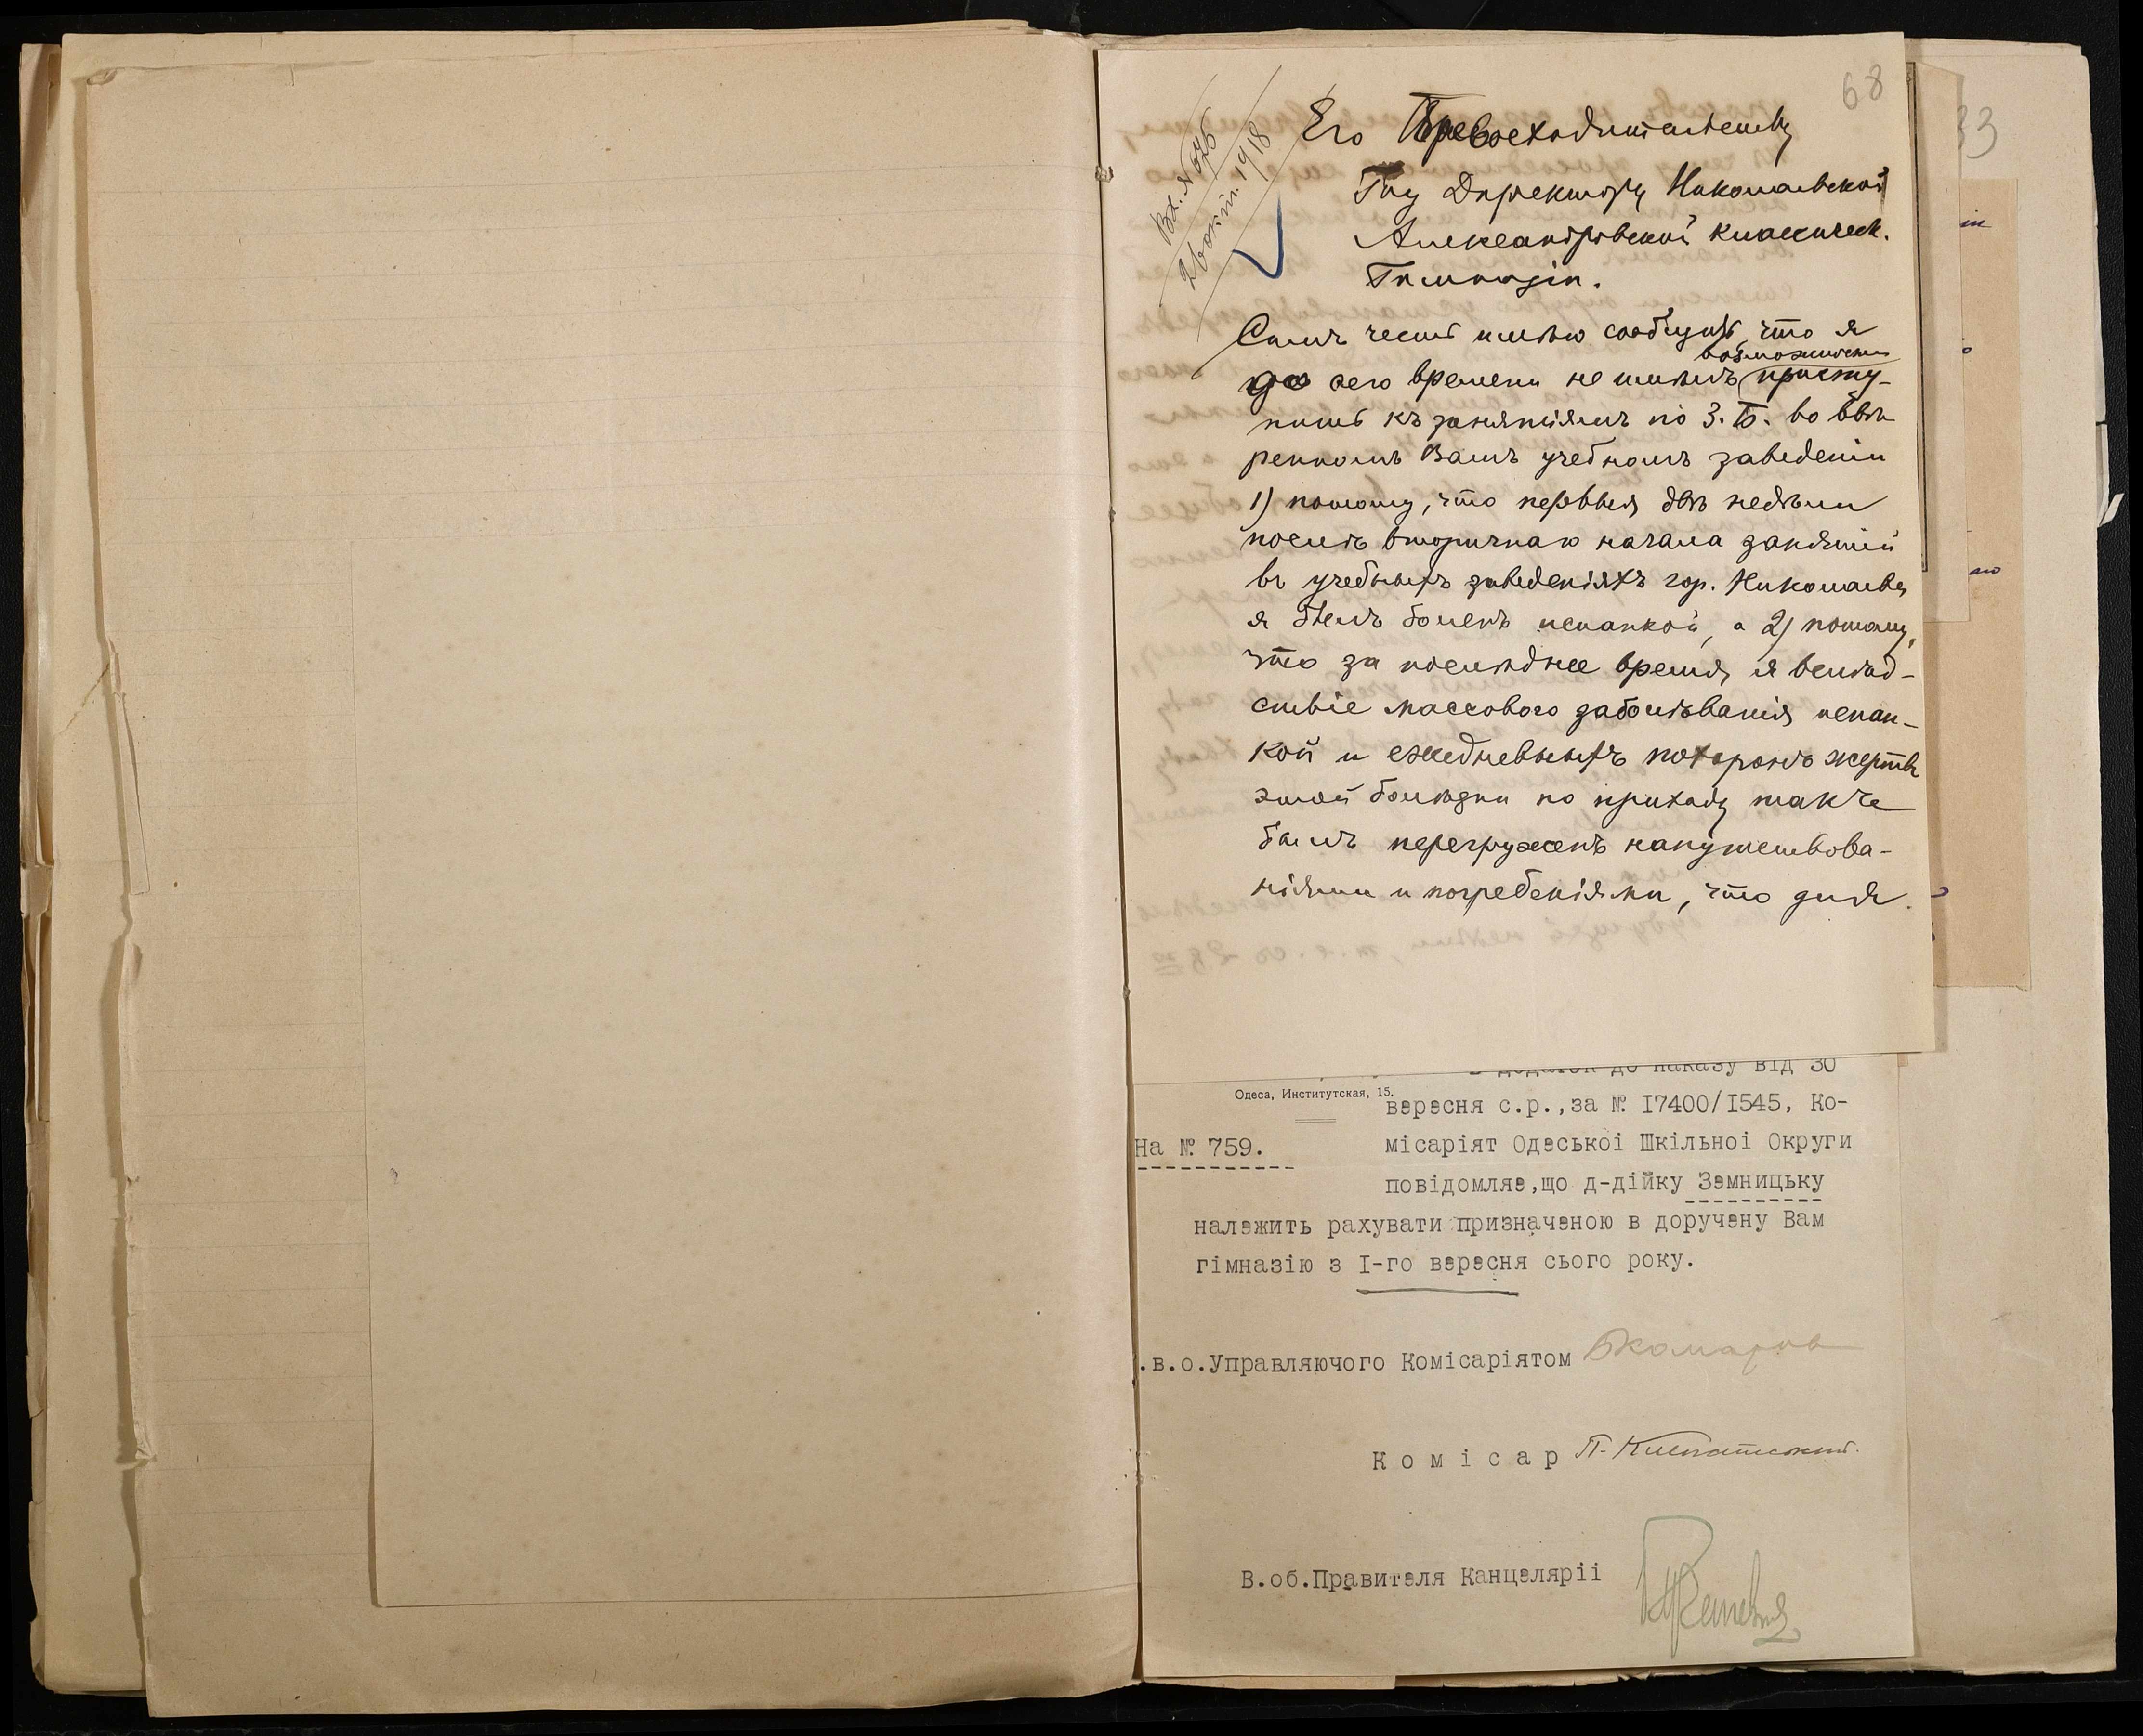 68
Вх. № 676
26 окт. 1918
Его Превосходительству
Г-ну Директору Николаевской
Александровской классическ.
Гимназіи.
Симъ честь имѣю сообщить, что я
до сего времени не имѣлъ возможности присту-
пить къ занятіямъ по З. Б. во ввѣ
ренномъ Вамъ учебномъ заведеніи
1) потому, что первыя двѣ недѣли
послѣ вторичнаго начала занятій
въ учебныхъ заведеніяхъ гор. Николаева
я былъ боленъ испанкой, а 2) потому,
что за послѣднее время я вслѣд-
ствіе массового заболѣванія испан-
кой и ежедневныхъ похоронъ жертвъ
этой болѣзни по приходу также
былъ перегруженъ напутствова-
ніями и погребеніями, что для
33
Одеса, Институтская, 15.
На № 759.
В додаток до наказу від 30
вересня с.р.,за № I7400/I545, Ко-
місаріят Одеської Шкільної Округи
повідомляє,що д-дійку Земницьку
належить рахувати призначеною в доручену Вам
гімназію з I-го вересня сього року.
.в.о.Управляючого Комісаріятом Комаров
Комісар П.
В.об.Правителя Канцелярії